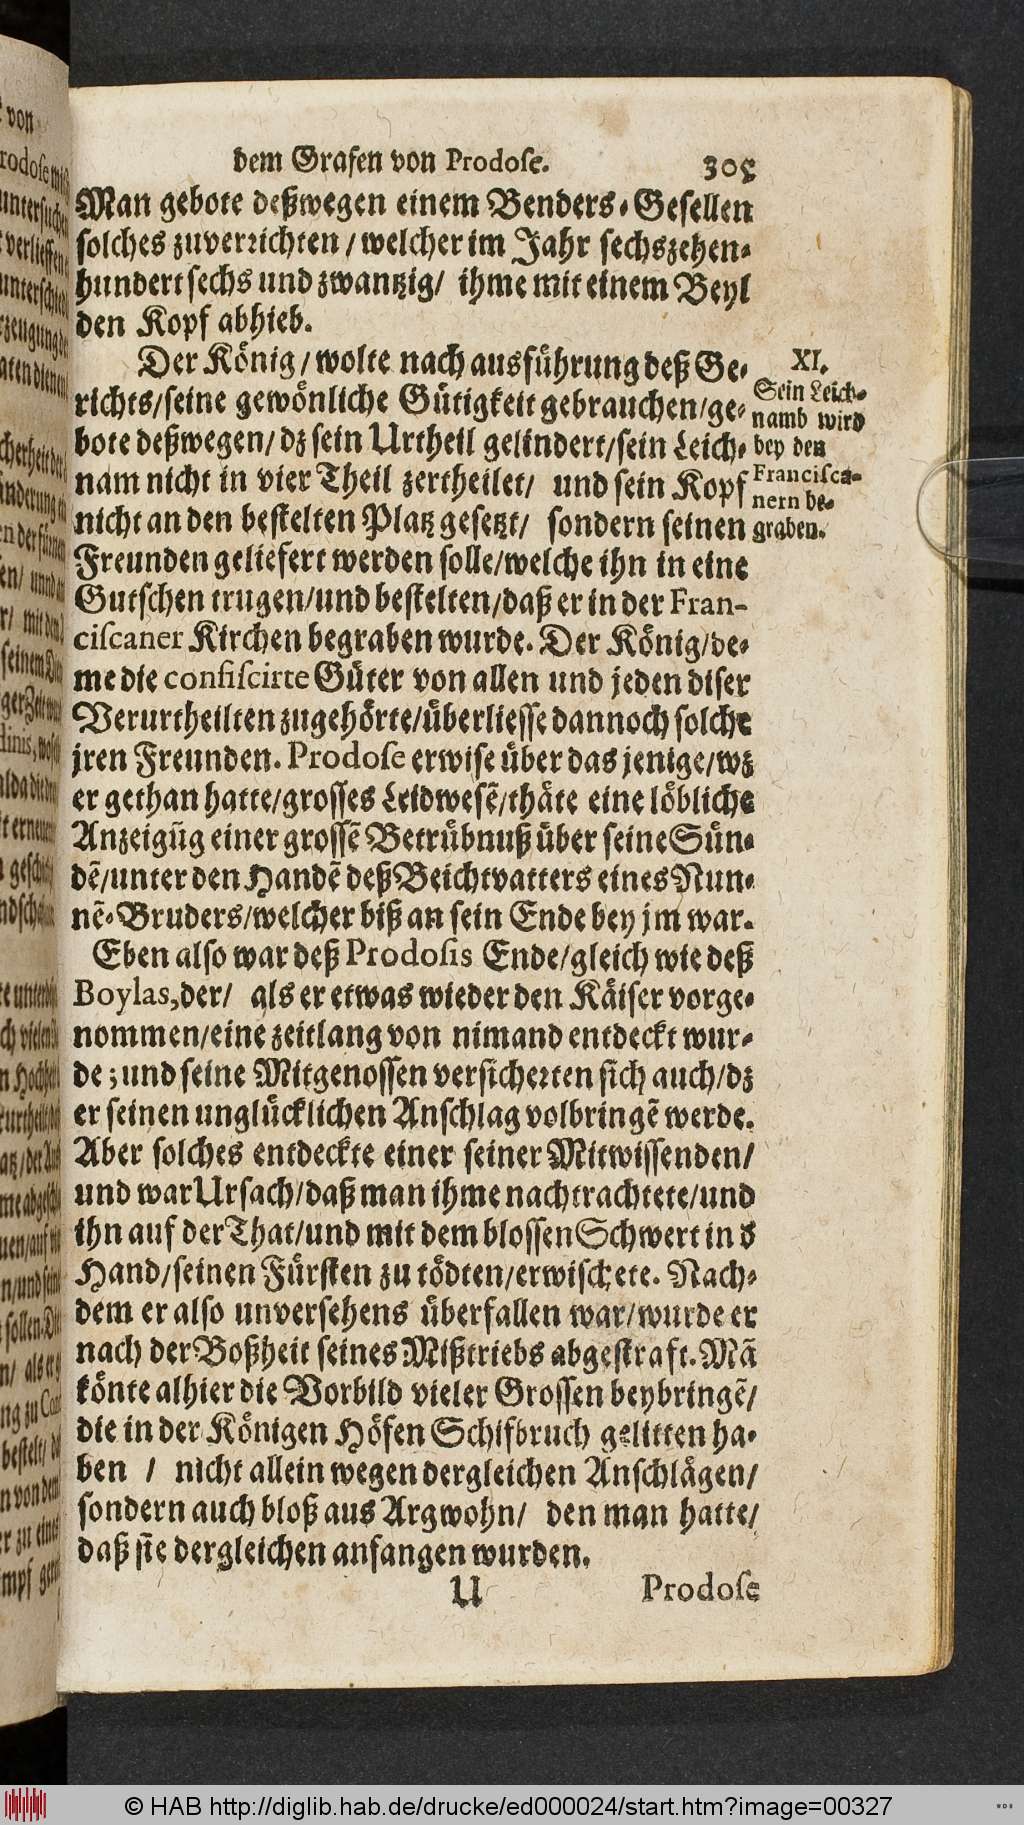 dem Grafen von Prodoſe. 305
Man gebote deßwegen einem Benders-Gesellen
solches zuverrichten / welcher im Jahr sechszehen-
hundert sechs und zwantzig / ihme mit einem Beyl
den Kopf abhieb.
Der König / wolte nach ausführung deß Ge-
richts / seine gewönliche Gütigkeit gebrauchen / ge-
bote deßwegen / dz sein Urtheil gelindert / sein Leich-
nam nicht in vier Theil zertheilet / und sein Kopf
nicht an den bestelten Platz gesetzt / sondern seinen
Freunden geliefert werden solle / welche ihn in eine
Gutschen trugen / und bestelten / daß er in der Fran-
ciſcaner Kirchen begraben wurde. Der König / de-
me die confiſcirte Güter von allen und jeden diser
Verurtheilten zugehörte / überliesse dannoch solche
jren Freunden. Prodoſe erwise über das jenige / wz
er gethan hatte / grosses Leidwesẽ / thäte eine löbliche
Anzeigũg einer grossẽ Betrübnuß über seine Sün-
dẽ / unter den Handẽ deß Beichtvatters eines Nun-
nẽ-Bruders / welcher biß an sein Ende bey jm war.
Eben also war deß Prodoſis Ende / gleich wie deß
Boylas, der / als er etwas wieder den Käiser vorge-
nommen / eine zeitlang von nimand entdeckt wur-
de ; und seine Mitgenossen versicherten sich auch / dz
er seinen unglücklichen Anschlag volbringẽ werde.
Aber solches entdeckte einer seiner Mitwissenden /
und war Ursach / daß man ihme nachtrachtete / und
ihn auf der That / und mit dem blossen Schwert in d
Hand / seinen Fürsten zu tödten / erwischete. Nach-
dem er also unversehens überfallen war / wurde er
nach der Boßheit seines Mißtriebs abgestraft. Mã
könte alhier die Vorbild vieler Grossen beybringẽ /
die in der Königen Höfen Schifbruch gelitten ha-
ben / nicht allein wegen dergleichen Anschlägen /
sondern auch bloß aus Argwohn / den man hatte /
daß sie dergleichen anfangen wurden.
U Prodoſe
XI.
Sein Leich-
namb wird
bey den
Franciſca-
nern be-
graben.
© HAB http://diglib.hab.de/drucke/ed000024/start.htm?image=00327